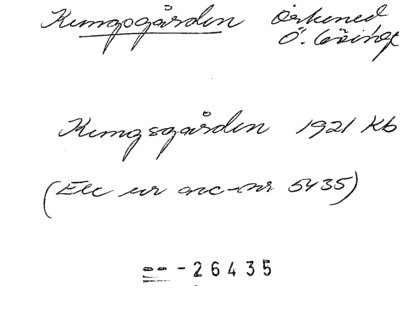 Kungsgården Örkened
Ö. Göinge
Kungsgården 1921 Kb
(Etc ur acc-nr 5435)
-- - 26435